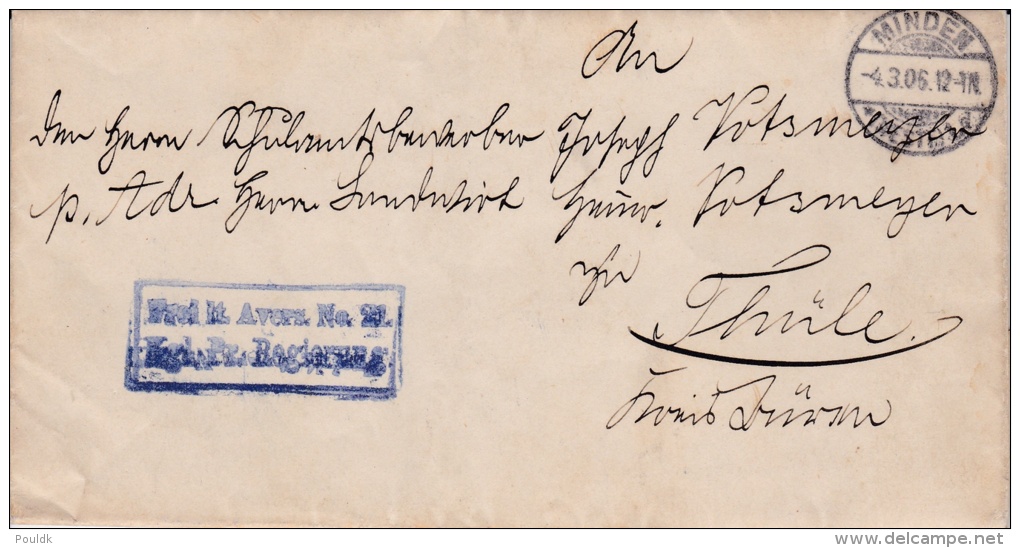 MINDEN
-4.3.06.12-1N.
An
den Herrn Schulamtsbewerber Joseph Votsmeyer
p. Adr. Herrn Landwirt Heinr. Votsmeyer
zu
Thüle.
Kreis Büren
Frei lt. Avers. No. 21.
Kgl. Pr. Regierung
Pouldk
delcampe.net